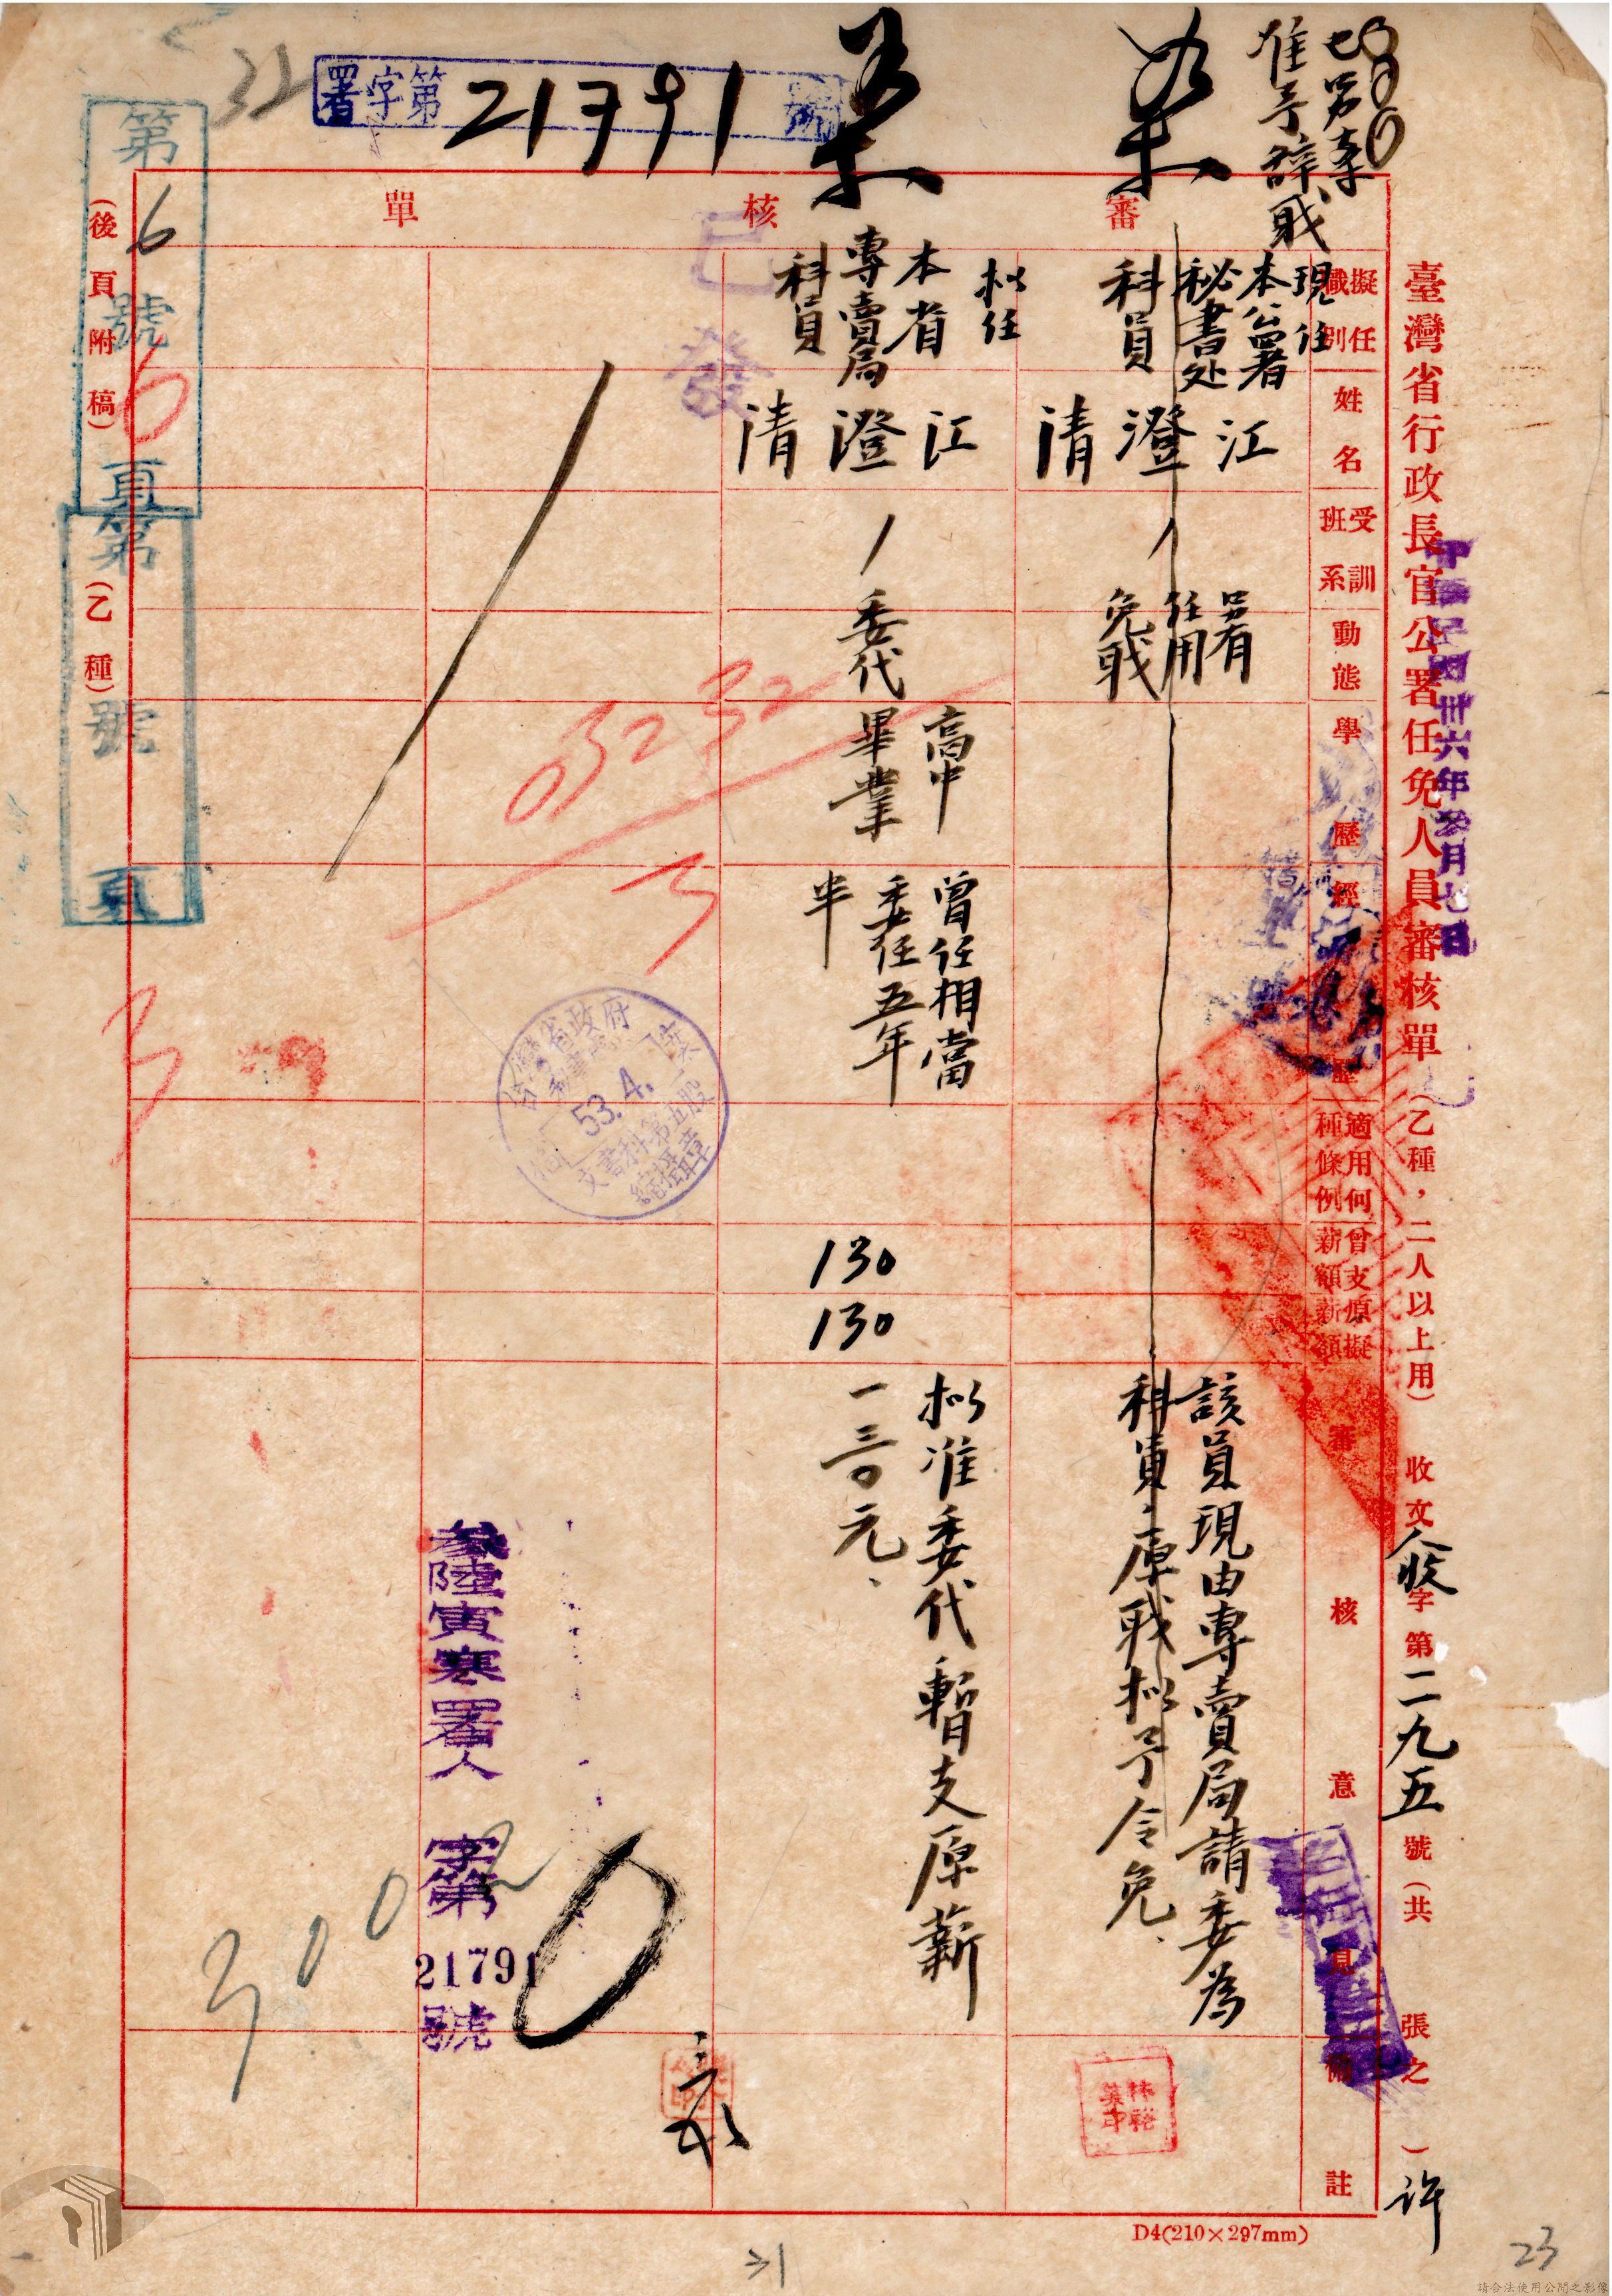 臺灣省行政長官公署任免人員審核單(乙種,二人以上用) 收文人收字第二九五號(共 張之 )
許
中華民國卅六年參月七日
准予辭職
審核單
擬任職別
姓名
受訓班系
動態
學歷
經歷
適用何種條例
曾支原薪額
擬薪額
審核意見
備註
現任
本公署
秘書处
科員
江澄清
另有
任用
免職
該員現由專賣局請委為
科員,原职拟予令免、
林裕
拟任
本省
專賣局
科員
江澄清
委代
高中
畢業
曾任相當
委任五年
半
130
130
拟准委代暫支原薪
一三〇元、
已發
署字第21791號
參陸寅寒署人 字第21791號
台灣省政府
53.4.
文書科第五股
縮攝章
032 32
3
3
3002
第6號 頁
第 號 頁
(後頁附稿)
(乙種)
6
32
D4(210×297mm)
31
23
請合法使用公開之影像